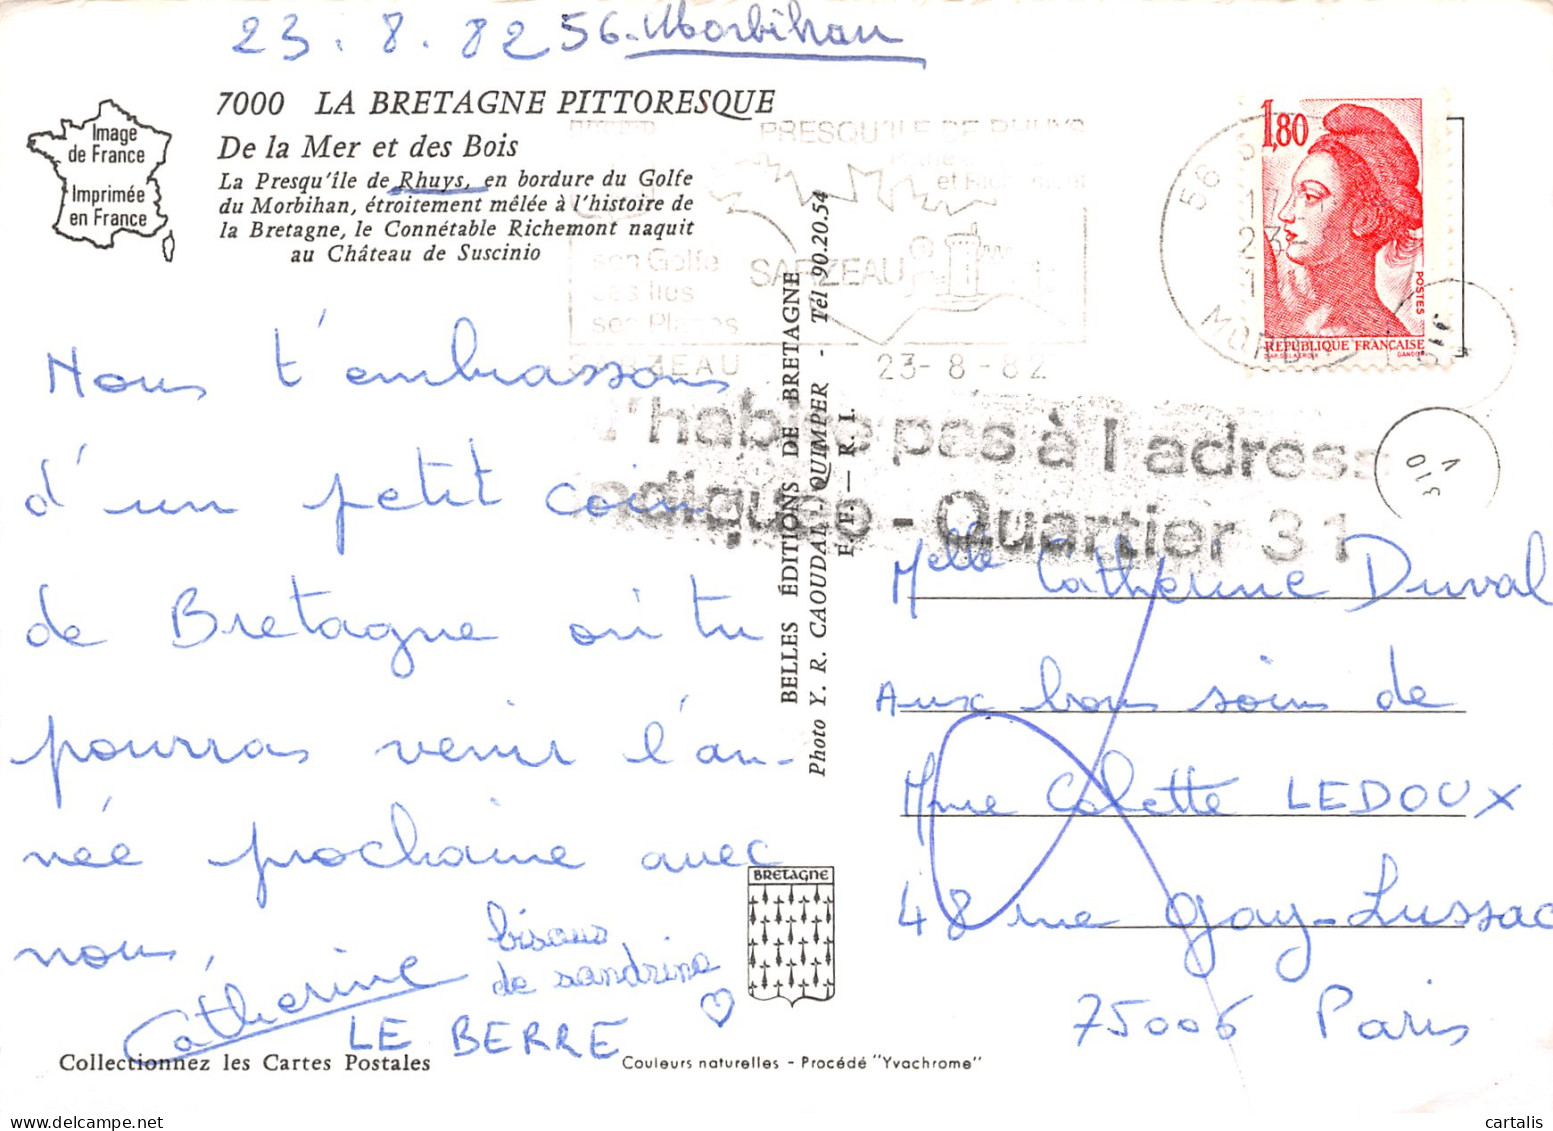 23.8.82 56. Morbihan
7000 LA BRETAGNE PITTORESQUE
De la Mer et des Bois
La Presqu'île de Rhuys, en bordure du Golfe
du Morbihan, étroitement mêlée à l'histoire de
la Bretagne, le Connétable Richemont naquit
au Château de Suscinio
Image
de France
Imprimée
en France
PRESQU'ILE DE RHUYS
et Richemont
son Golfe
ses Iles
ses Plages
SARZEAU
SARZEAU 23-8-82
56
17
23-
1,80
POSTES
REPUBLIQUE FRANÇAISE
GANDON
N'habite pas à l'adresse
indiquée - Quartier 31
V
310
Nous t'embrassons
d'un petit coin
de Bretagne où tu
pourras venir l'an-
née prochaine avec
nous.
Catherine
bisous
de sandrine
LE BERRE
BELLES ÉDITIONS DE BRETAGNE
Photo Y. R. CAOUDAL, QUIMPER - Tél 90.20.54
F. F. — R. I.
Melle Catherine Duval
Aux bons soins de
Mme Colette LEDOUX
48 rue Gay-Lussac
75006 Paris
BRETAGNE
Collectionnez les Cartes Postales
Couleurs naturelles - Procédé "Yvachrome"
cartalis